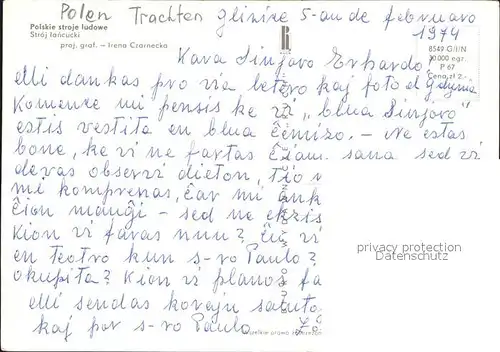 Polen Trachten Glivice 5-an de februaro
1974
Polskie stroje ludowe
Strój łańcucki
proj. graf. — Irena Czarnecka
8549 G/I/N
30.000 egz.
P 67
Cena zł 2.-
Kara Sinjoro Erhardo
Mi dankas pro via letero kaj foto el Gdynia
Komence mi pensis ke vi „blua Sinjoro"
estis vestita en blua ĉemizo. – Ne estas
bone, ke vi ne fartas ĉiam sana sed vi
devas observi dieton, tio
mi komprenas, ĉar mi ank
ĉion manĝi – sed ne ekzis
Kion vi faras nun? Ĉu vi
en teatro kun s-ro Paulo?
okupita? Kion vi planos fa
Mi sendas korajn saluto
kaj por s-ro Paulo
privacy protection
Datenschutz